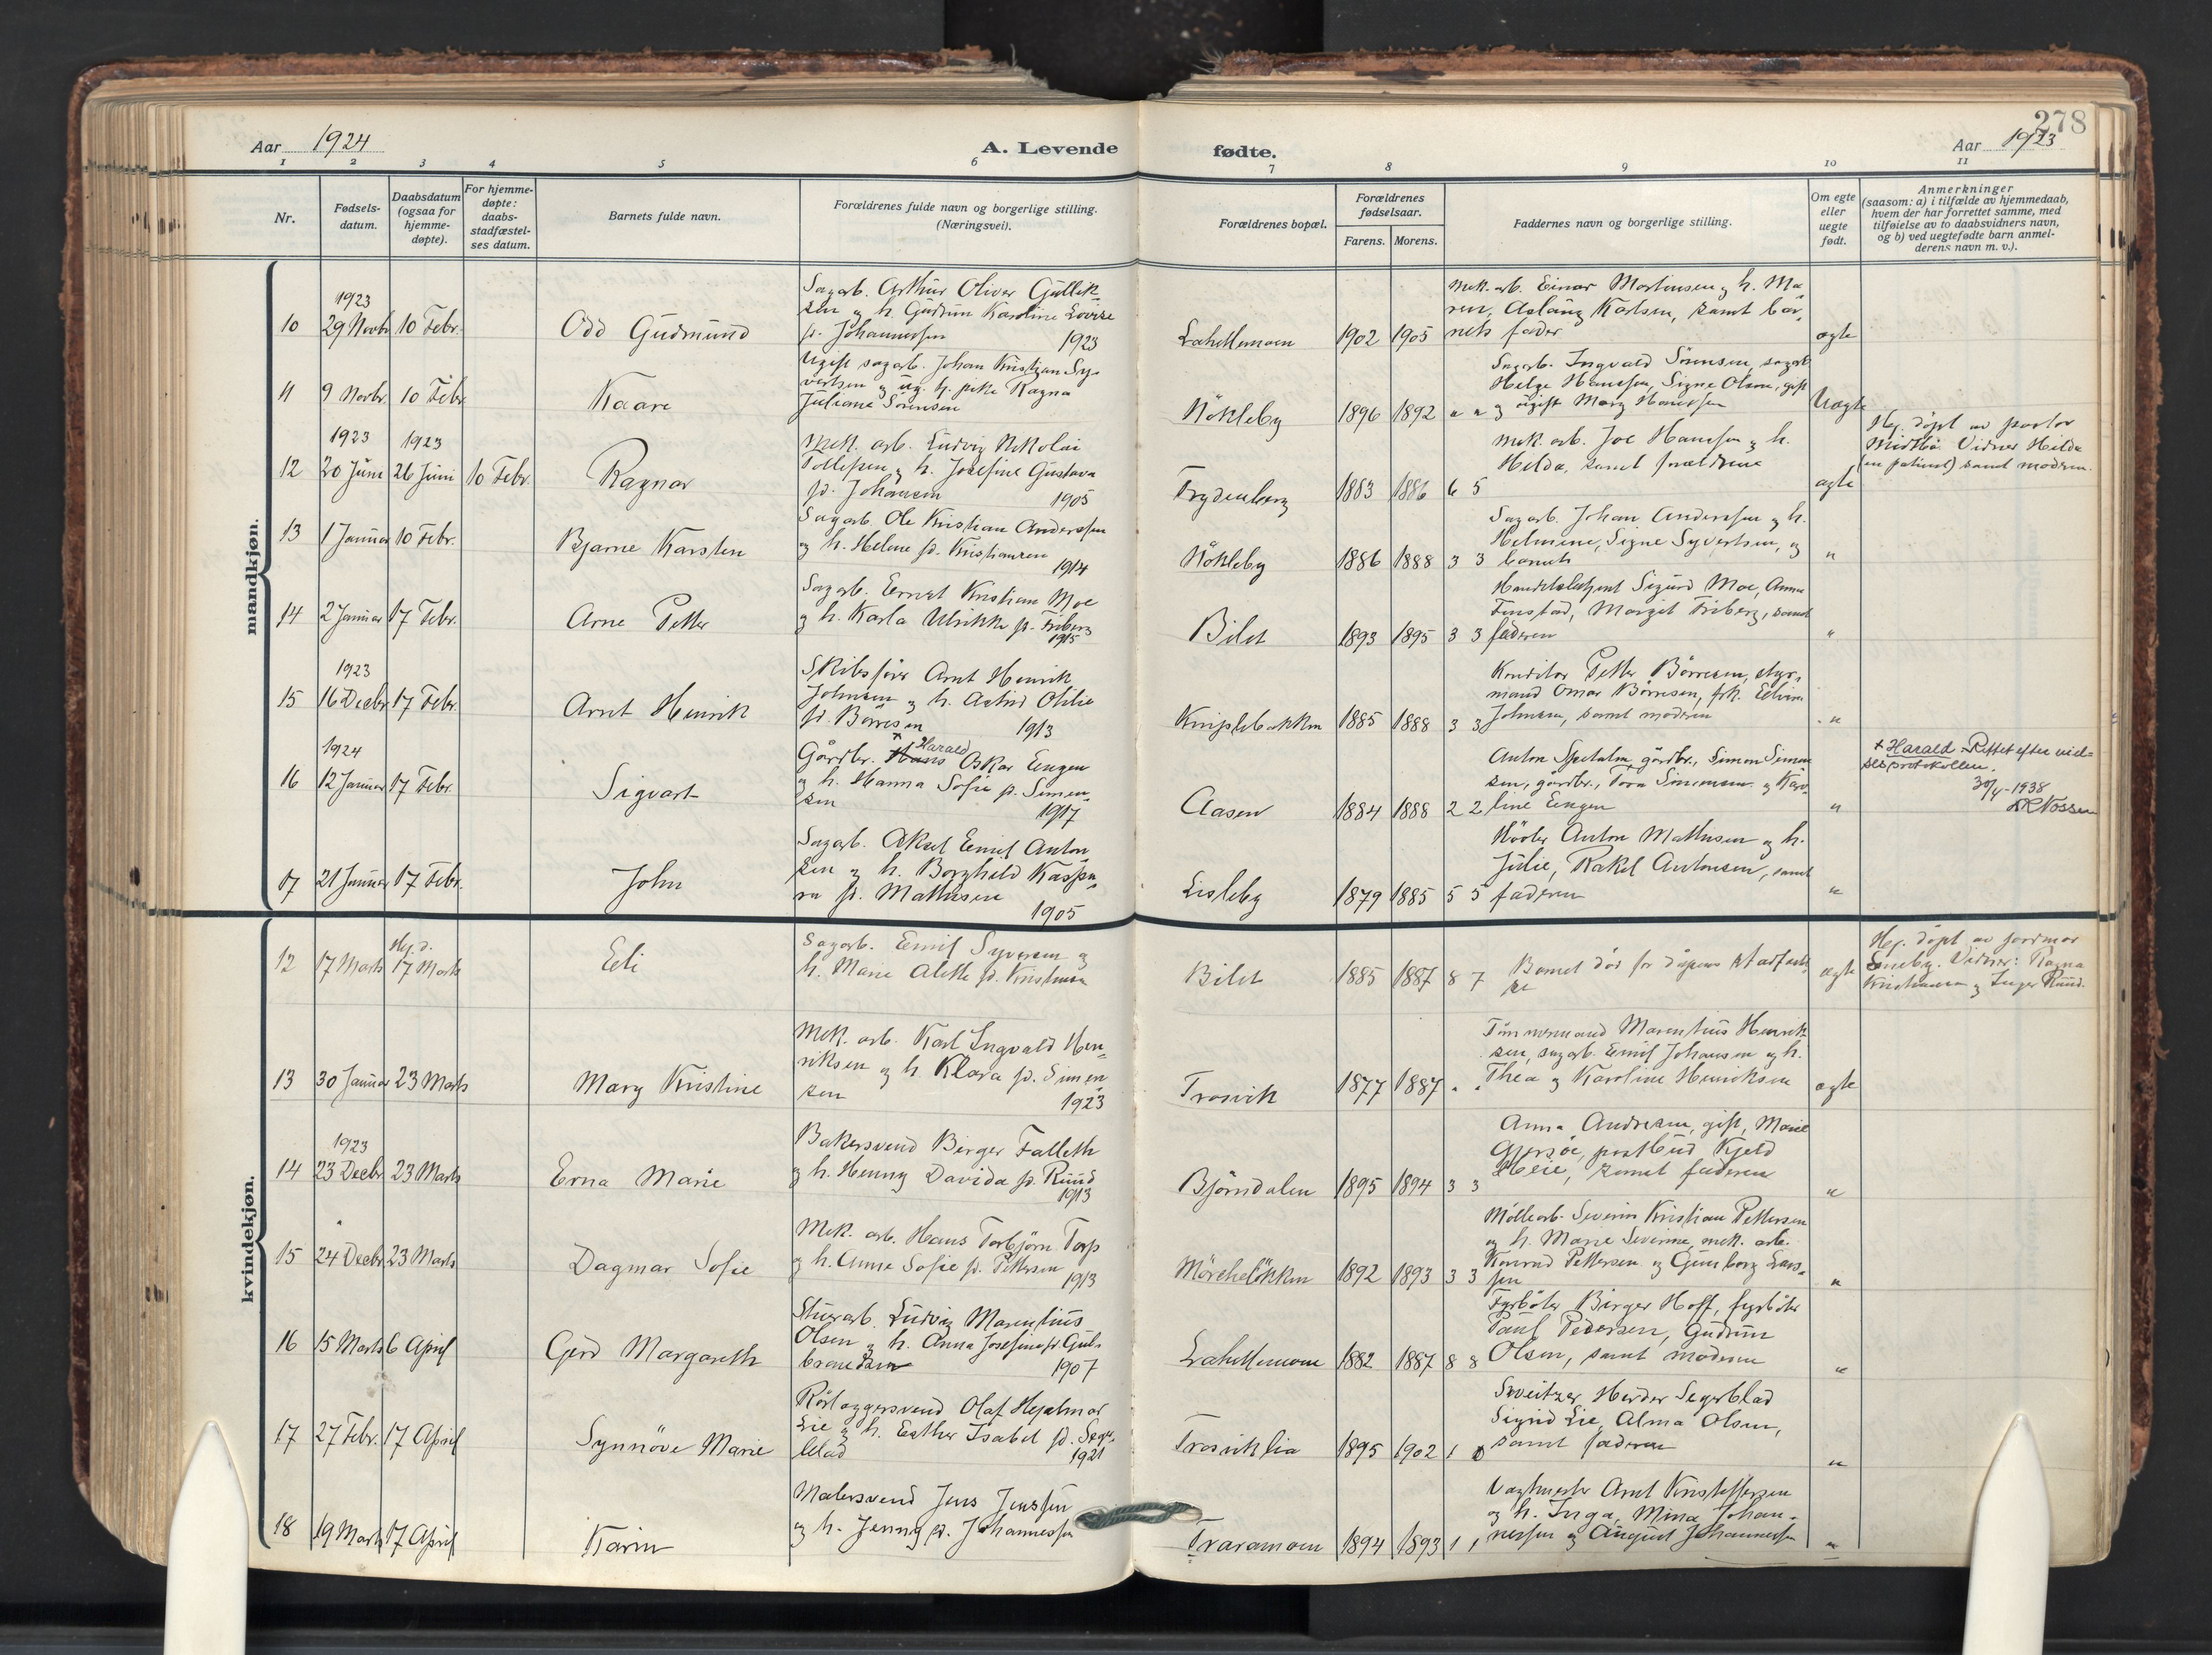 278
Aar 1924
A. Levende
fødte.
Aar 1923
1 2 3 4 5 6 7 8 9 10 11
Nr.
Fødsels-
datum.
Daabsdatum
(ogsaa for
hjemme-
døpte).
For hjemme-
døpte:
daabs-
stadfæstel-
ses datum.
Barnets fulde navn.
Forældrenes fulde navn og borgerlige stilling.
(Næringsvei).
Forældrenes bopæl.
Forældrenes
fødselsaar.
Farens. Morens.
Faddernes navn og borgerlige stilling.
Om egte
eller
uegte
født.
Anmerkninger
(saasom: a) i tilfælde av hjemmedaab,
hvem der har forrettet samme, med
tilføielse av to daabsvidners navn,
og b) ved uegtefødte barn anmel-
derens navn m. v.).
mandkjøn.
1923
10 29 Novbr 10 Febr. Odd Gudmund
Sagarb. Arthur Oliver Gullik-
sen og h. Gudrun Karoline Lovise
f. Johannessen 1923
Lahellemoen 1902 1905
Mek. arb. Einar Mortensen og h. Ma
ren, Aslaug Karlsen, samt bar-
nets fader
ægte
11 9 Novbr. 10 Febr Kaare
Ugift sagarb. Johan Kristian Sy-
vertsen og ug. tj. pike Ragna
Juliane Sørensen
Nökleby 1896 1892 " "
Sagarb. Ingvald Sörensen, sagarb.
Helge Hanssen, Signe Olsen, gift
og ugift Mary Hanssen
Uægte
1923 1923
12 20 Juni 26 Juni 10 Febr. Ragnar
Mek. arb. Ludvig Nikolai
Tollefsen og h. Josefine Gustava
fd. Johansen 1905
Frydenberg 1883 1886 6 5
Mek. arb. Joe Hansen og h.
Helda, samt foreldrene
ægte
Hj. döpt av pastor
Midtbö. Vidner Hilda
(en patient) samt modern.
13 1 Januar 10 Febr. Bjarne Karsten
Sagarb. Ole Kristian Anderssen
og h. Helene fd. Kristiansen
1914
Nökleby 1886 1888 3 3
Sagarb. Johan Anderssen og h.
Helmine, Signe Syvertsen, og
barnets
"
14 2 Januar 17 Febr. Arne Petter
Sagarb. Ernst Kristian Moe
og h. Karla Ulrikke f. Friberg
1915
Bilet 1893 1895 3 3
Sigurd Moe, Anna
Finstad, Margit Friberg, samt
faderen
"
1923
15 16 Decbr 17 Febr. Arnt Henrik
Skibsförer Arnt Henrik
Johnsen og h. Astrid Otilie
fd. Börresen 1913
Kniplebakken 1885 1888 3 3
Konditor Petter Börresen, styr-
mand Omar Börresen, frk. Edvine
Johnsen, samt moderen
"
1924
16 12 Januar 17 Febr. Sigvart
Gårdbr. Hans Harald Oskar Engen
og h. Hanna Sofie f. Simen-
sen 1917
Aasen 1884 1888 2 2
Anton Spetalen, gårdbr., Simon Simen
sen, gårdbr., Tora Simensen og Karo-
line Engen
"
+ Harald - Rettet efter viel-
sesprotokollen.
30/4-1938
17 21 Januar 17 Febr. John
Sagarb. Aksel Emil Anton
sen og h. Borghild Kaspa-
ra fd. Mathisen
1905
Lisleby 1879 1885 5 5
Hövler Anton Mathisen og h.
Julie, Rakel Antonsen, samt
faderen
"
kvindekjøn.
Hj. d.
12 17 Marts 17 Marts Eli
Sagarb. Emil Syversen og
h. Marie Alette fd. Kristiansen
Bilet 1885 1887 8 7
Barnet död för dåpens stadfæstel
se
ægte
Hj. döpt av jordmor
Smeby. Vidner: Ragna
Kristiansen og Inger Ruud.
13 30 Januar 23 Marts Mary Kristine
Mek. arb. Karl Ingvald Hen-
riksen og h. Klara fd. Simen
sen 1923
Trosvik 1877 1887 " "
Tömmermand Marentius Henrik
sen, sagarb. Emil Johansen og h.
Thea og Karoline Henriksen
ægte
1923
14 23 Decbr 23 Marts Erna Marie
Bakersvend Birger Falleth
og h. Henny Davida fd. Ruud
1913
Björndalen 1895 1894 3 3
Anna Andresen, gift, Marie
Gjersöe, postbud Kjeld
Heie, samt faderen
"
"
15 24 Decbr 23 Marts Dagmar Sofie
Mek. arb. Hans Torbjörn Torp
og h. Anna Sofie fd. Pettersen
1913
Mörchelökken 1892 1893 3 3
Möllearb. Severin Kristian Pettersen
og h. Marie Severine, mek. arb.
Konrad Pettersen og Gunborg Lars-
sen
"
16 15 Marts 6 April Gerd Margareth
Stuerarb. Ludvig Marentius
Olsen og h. Anna Josefine f. Gul-
brandsen 1907
Lahellemoen 1882 1887 8 8
Fyrböter Birger Hoff, fyrböter
Paul Pedersen, Gudrun
Olsen, samt moderen
"
17 27 Febr. 17 April Synnöve Marie
Rörlæggersvend Olaf Hjalmar
Lie og h. Esther Isabel fd. Seger-
blad 1921
Trosviklia 1895 1902 1
Sveitzer Herder Segerblad
Sigrid Lie, Alma Olsen,
samt faderen
"
18 19 Marts 17 April Karin
Malersvend Jens Jenssen
og h. Jenny fd. Johannessen
Traramoen 1894 1893 1 1
Vagtmester Arnt Kristoffersen
og h. Inga, Mina Johan-
nessen og August Johannessen
"